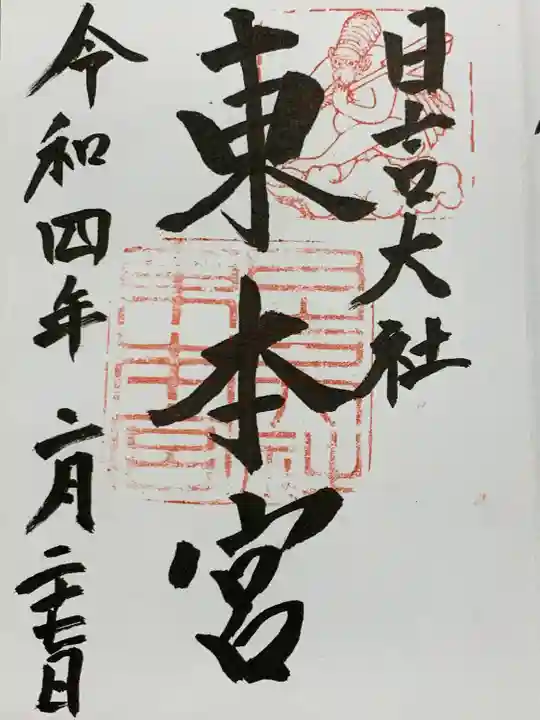 日吉大社
東本宮
令和四年 二月二十七日